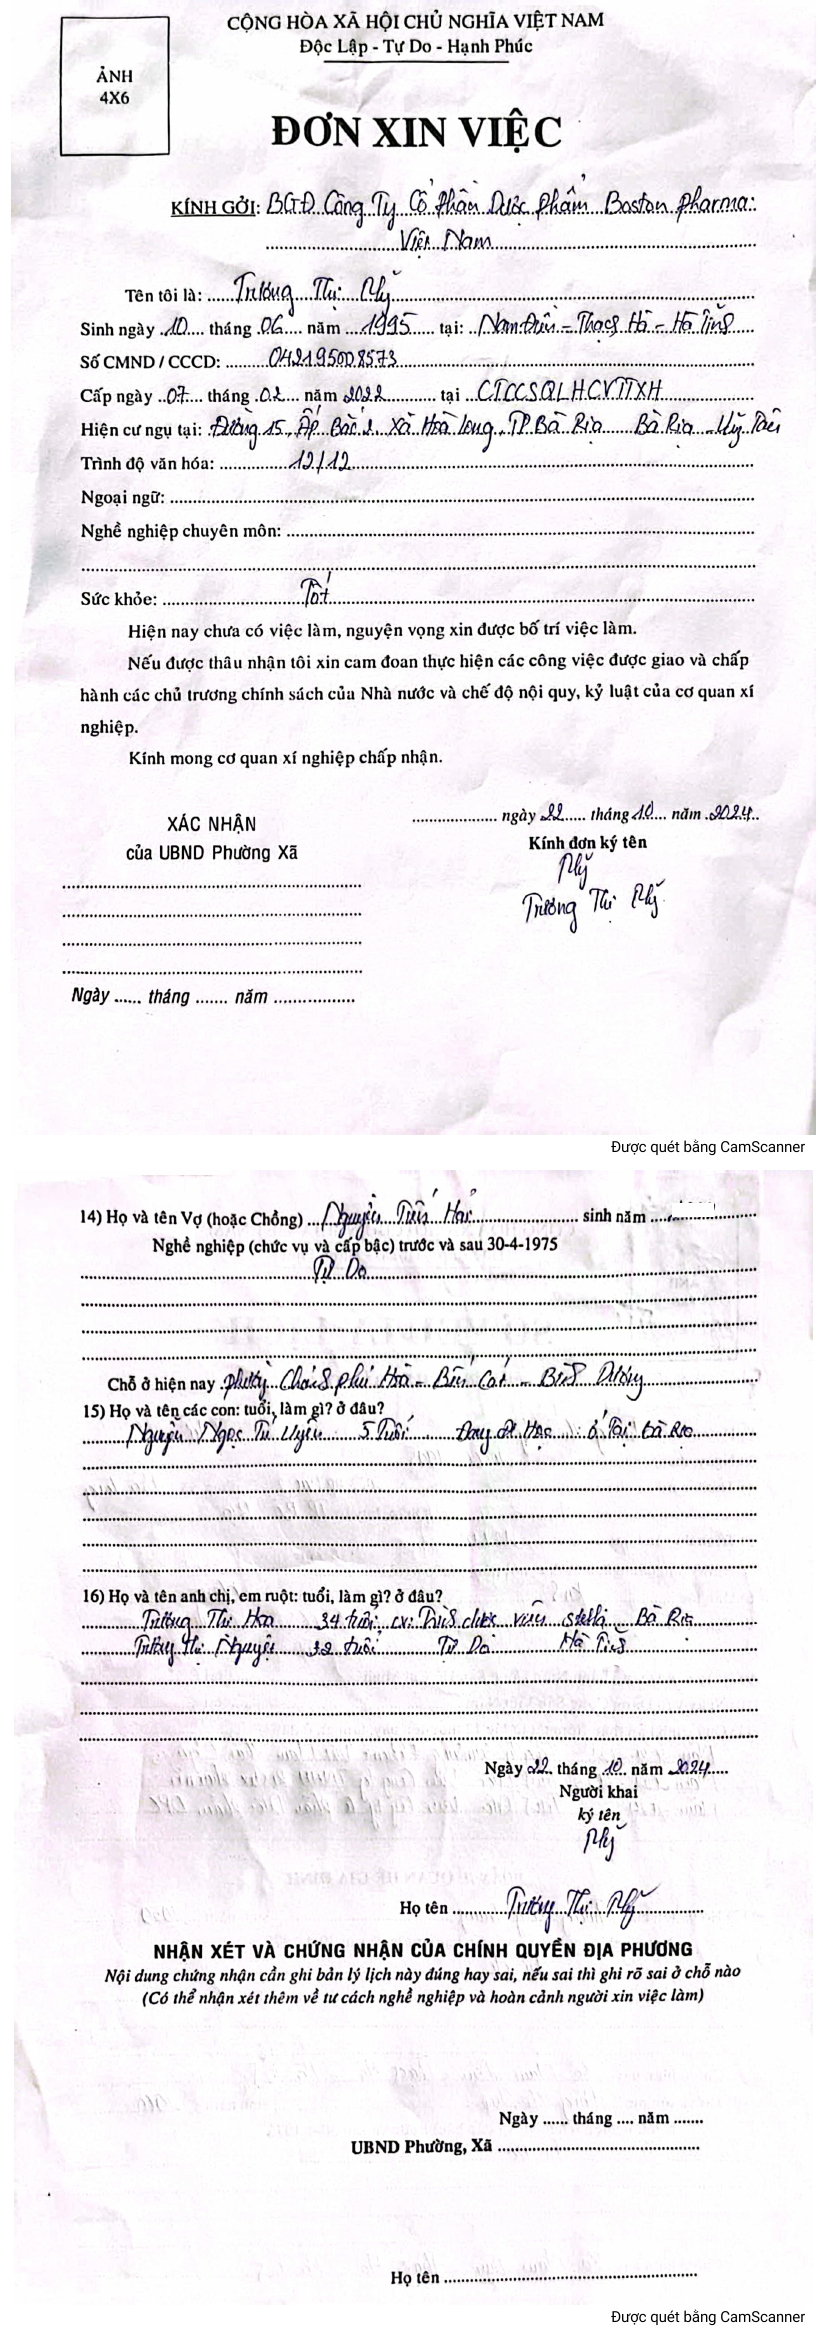 CỘNG HÒA XÃ HỘI CHỦ NGHĨA VIỆT NAM
Độc Lập - Tự Do - Hạnh Phúc
ẢNH
4X6
ĐƠN XIN VIỆC
KÍNH GỞI: BGĐ Công Ty Cổ Phần Dược Phẩm Boston Pharma
Việt Nam
Tên tôi là: Trương Thị Mỹ
Sinh ngày 10 tháng 06 năm 1995 tại: Nam Điền - Thạch Hà - Hà Tĩnh
Số CMND / CCCD: 042195008573
Cấp ngày 07 tháng 02 năm 2022 tại CTCCSQLHCVTTXH
Hiện cư ngụ tại: Đường 15, Ấp Bắc 2 Xã Hoà Long, TP Bà Rịa Bà Rịa - Vũng Tàu
Trình độ văn hóa: 12/12
Ngoại ngữ:
Nghề nghiệp chuyên môn:
Sức khỏe: Tốt
Hiện nay chưa có việc làm, nguyện vọng xin được bố trí việc làm.
Nếu được thâu nhận tôi xin cam đoan thực hiện các công việc được giao và chấp
hành các chủ trương chính sách của Nhà nước và chế độ nội quy, kỷ luật của cơ quan xí
nghiệp.
Kính mong cơ quan xí nghiệp chấp nhận.
ngày 22 tháng 10 năm 2024
XÁC NHẬN
của UBND Phường Xã
Kính đơn ký tên
Mỹ
Trương Thị Mỹ
Ngày ...... tháng ....... năm .................
Được quét bằng CamScanner
14) Họ và tên Vợ (hoặc Chồng) Nguyễn Tuấn Hải sinh năm
Nghề nghiệp (chức vụ và cấp bậc) trước và sau 30-4-1975
Tự Do
Chỗ ở hiện nay phường Chánh Phú Hoà - Bến Cát - Bình Dương
15) Họ và tên các con: tuổi, làm gì? ở đâu?
Nguyễn Ngọc Tú Uyên 5 Tuổi Đang đi Học ở Tại Bà Rịa
16) Họ và tên anh chị, em ruột: tuổi, làm gì? ở đâu?
Trương Thị Hoà 34 tuổi, cv: Bà Rịa
Trương Thị Nguyệt 32 tuổi Tự Do Hà Tĩnh
Ngày 22 tháng 10 năm 2024
Người khai
ký tên
Mỹ
Họ tên Trương Thị Mỹ
NHẬN XÉT VÀ CHỨNG NHẬN CỦA CHÍNH QUYỀN ĐỊA PHƯƠNG
Nội dung chứng nhận cần ghi bản lý lịch này đúng hay sai, nếu sai thì ghi rõ sai ở chỗ nào
(Có thể nhận xét thêm về tư cách nghề nghiệp và hoàn cảnh người xin việc làm)
Ngày ...... tháng .... năm .......
UBND Phường, Xã
Họ tên
Được quét bằng CamScanner